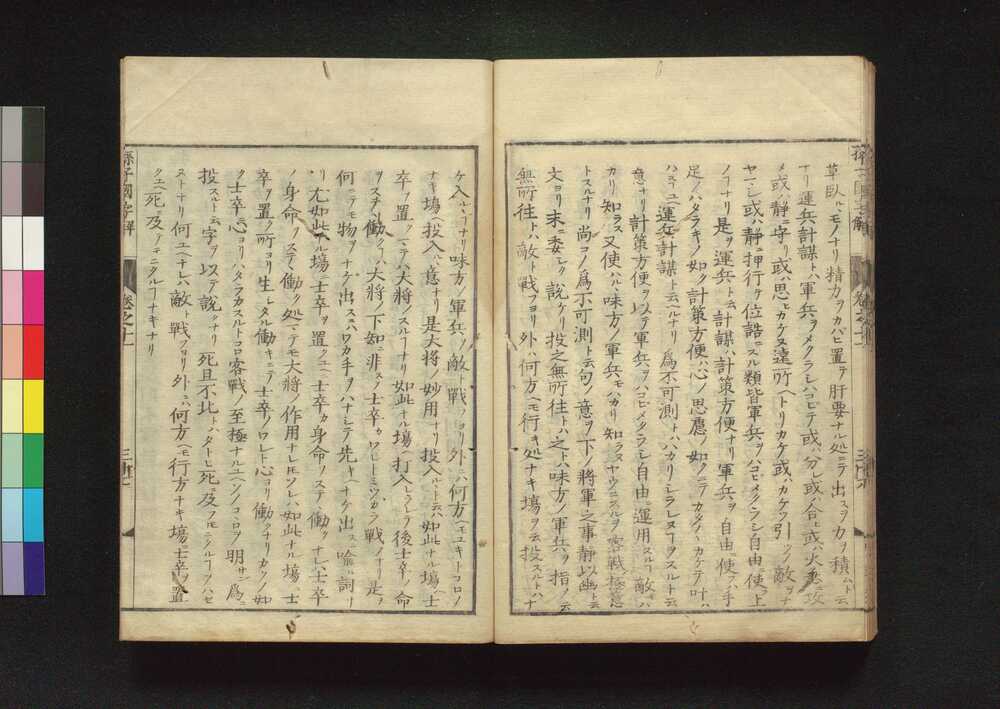 草臥ルヽモノナリ精力ヲカバヒ置テ肝要ナル処ニテ出スヲ力ヲ積ムト云
ナリ運兵計謀トハ軍兵ヲメクラシハコビテ或ハ分レ或ハ合ヒ或ハ火急ニ攻
メ或ハ静ニ守リ或ハ思ヒカケヌ遠所ヘトリカケ或ハカケヲ引ツ敵ヲナ
ヤマシ或ハ静ニ押行ケ位詰ニスル類皆軍兵ヲハコビメクラシ自由ニ使フ上
ノコナリ是ヲ運兵ト云計謀ハ計策方便ナリ軍兵ヲ自由ニ使フハ手
足ノハタラキノ如ク計策方便ハ心ノ思慮ノ如ノニテカケテハカケテ叶ハ
ハコニ運兵計謀ト云ヘルナリ為不可測トハハカリシラレヌコヲスルト云
意ナリ計策方便ヲ以テ軍兵ヲハコビメクラシ自由ニ運用スルコ敵ニハ
カリ知ラス又使ハルヽ味方ノ軍兵モハカリ知ラスヤウニスルヲ客戦極意
トスルナリ尚コノ為不可測ト云句ノ意ヲ下ノ將軍之事静以幽ト云
文ヨリ末ニ委しク説ケリ投之無所往トハ之トハ味方ノ軍兵ヲ指ノ云
無所往トハ敵ト戦フヨリ外ハ何方ヘモ行キ処ナキ場ヲ云投スルトハナ
ケ入ルヽコナリ味方ノ軍兵ノ敵ト戦フヨリ外ニハ何方ヘモユキトコロノ
ナキ場ヘ投入ルヽ意ナリ是大将ノ妙用ナリ投入ルヽト云ハ如此ナル場ニ士
卒ヲ置クコニテハ大将ノスルコナリ如此ナル場ヘ打入レラレテ後士卒ノ命
ヲステヽ働クコハ大将ノ下知ニ非ス士卒カワレトミツカラ戦ノナリ是ヲ
何ニテモ物ヲナケ出スニハワカ手ヲハナシテ先キヘナケ出スニ喩ル詞ナ
リ尤如此ナル場ニ士卒ヲ置クユヘ士卒カ身命ノステ働クナレハ士卒
ノ身命ヲステ働ク処ニテモ大将ノ作用ナレ𪜈ソレハ如此ナル場ニ士
卒ヲ置ク所ヨリ生レタル働キニテ士卒ノワレト心ヨリ働クナリカクノ如
ク士卒ノ心ヨリハタラカスルトコロ客戦ノ至極ナルユヘソノコロヲ明サン為ニ
投スルト云字ヲ以テ説クナリ死且不北トハタトヒ死ニ及フモニクルコヲハセ
ヌトナリ何ユヘナレハ敵ト戦フヨリ外ニハ何方ヘモ行方ナキ場ニ士卒ヲ置
クユヘ死ニ及フモニクルコナキナリ
孫子國字解
卷之十一